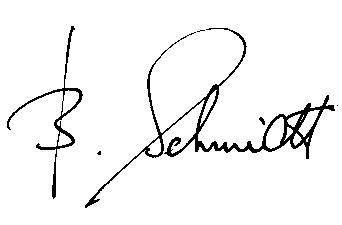 B. Schmidt